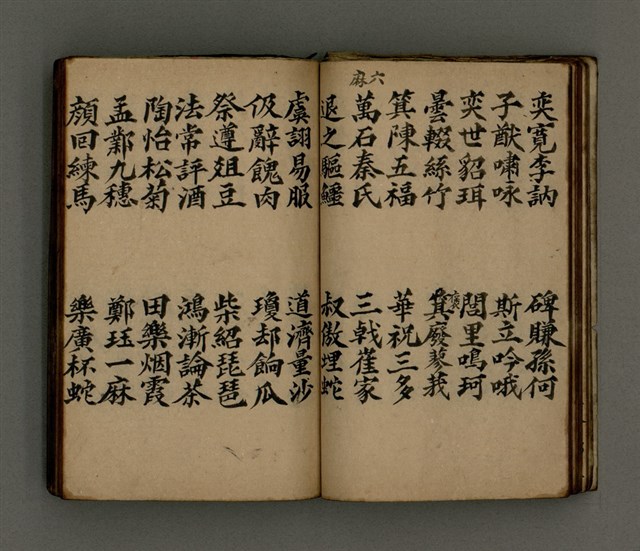 奕寬李訥 碑賺孫何
子猷嘯咏 斯立吟哦
奕世貂珥 閭里鳴珂
曇輟絲竹 箕裒廢蓼莪
箕陳五福 華祝三多
六麻
萬石秦氏 三戟崔家
退之驅鱷 叔傲埋蛇
虞詡易服 道濟量沙
伋辭餽肉 瓊却餉瓜
祭遵俎豆 柴紹琵琶
法常評酒 鴻漸論茶
陶怡松菊 田樂烟霞
孟鄴九穗 鄭珏一麻
顔回練馬 樂廣杯蛇